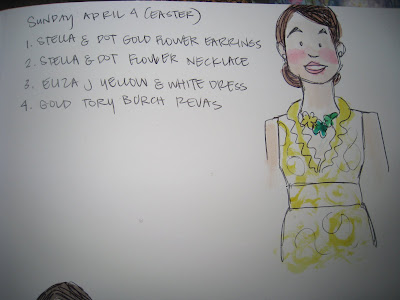 SUNDAY APRIL 4 (EASTER)
1. STELLA & DOT GOLD FLOWER EARRINGS
2. STELLA & DOT FLOWER NECKLACE
3. ELIZA J YELLOW & WHITE DRESS
4. GOLD TORY BURCH REVAS